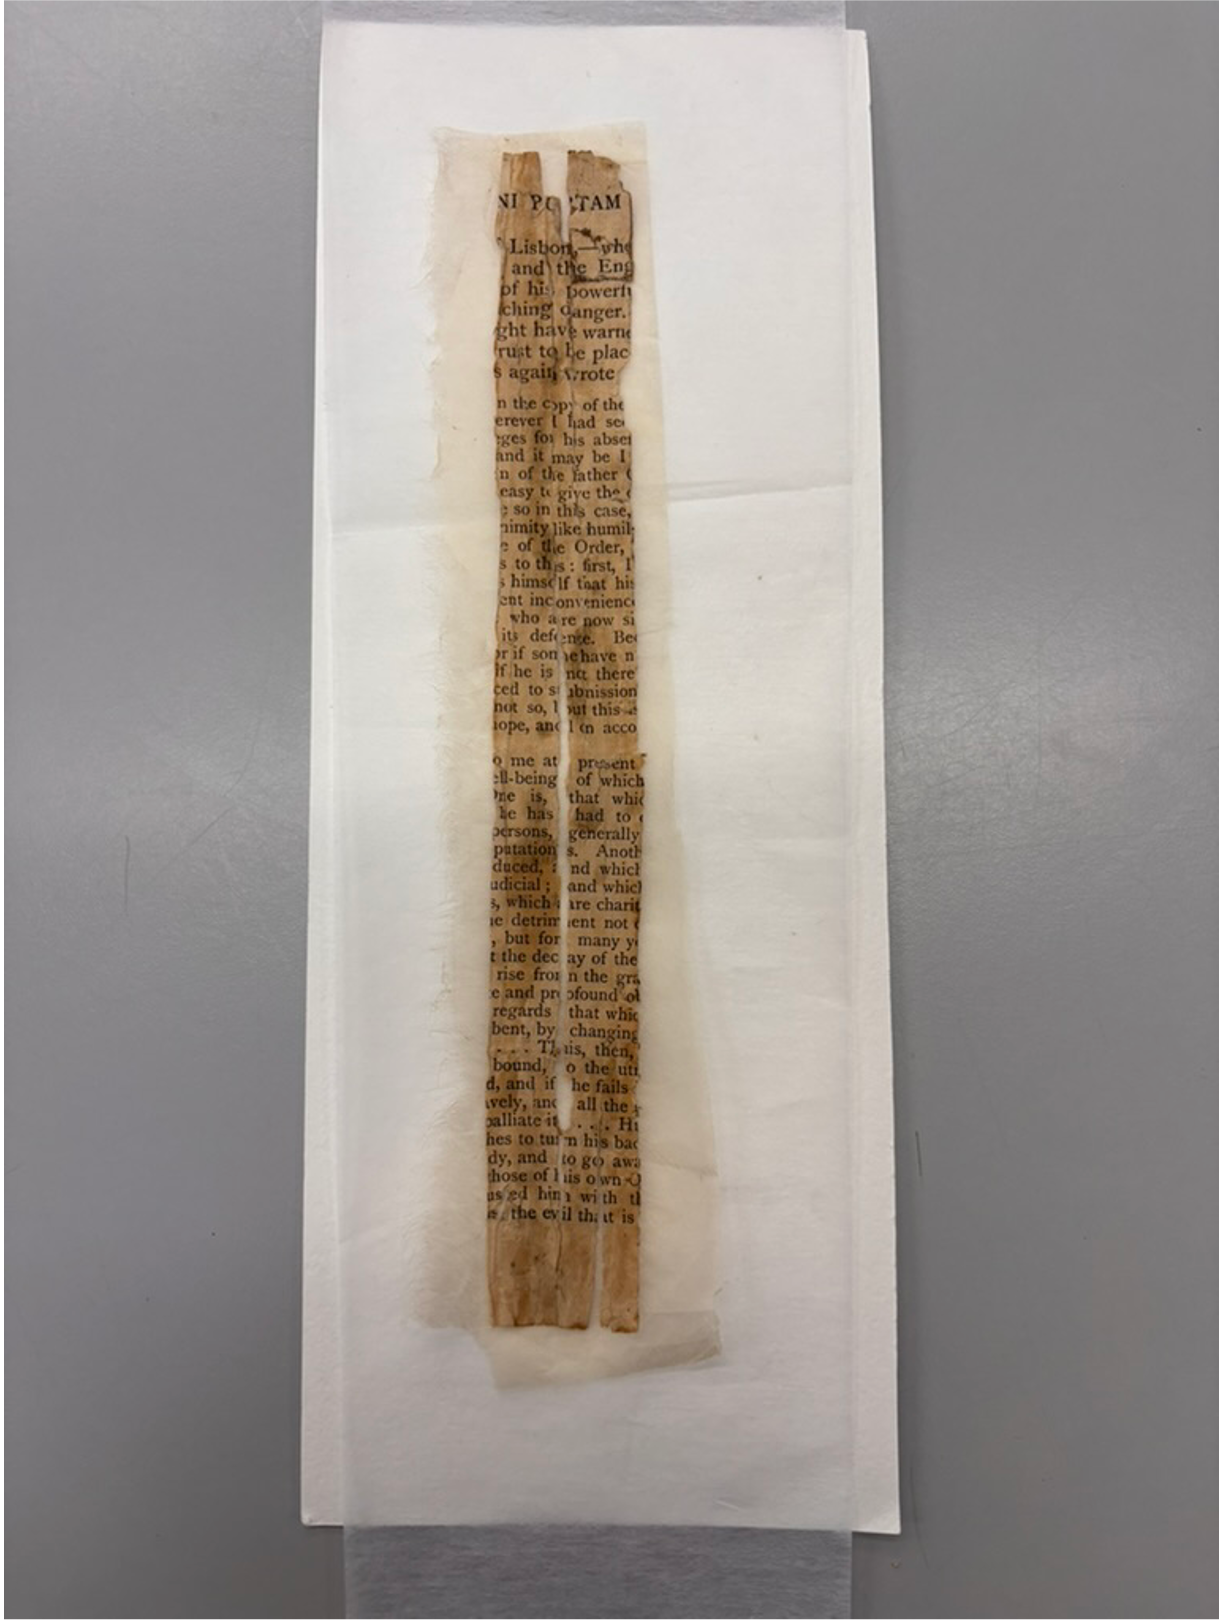 NI PO TAM
Lisbon,—whe
and the Eng
of his powerfu
ching danger.
ght have warne
rust to be plac
s again wrote
n the copy of the
erever I had see
ges for his absen
and it may be I
n of the father
easy to give the
e so in this case,
nimity like humil
e of the Order,
s to this: first, I
s himself that his
ent inconvenienc
who are now si
its defense. Bec
or if some have n
If he is not there
ced to submission
not so, but this
hope, and in acco
o me at present
ell-being of which
One is, that whic
he has had to
persons, generally
putations. Anoth
duced, and which
udicial; and which
s, which are charit
he detriment not
, but for many y
t the decay of the
rise from the gra
e and profound ob
regards that whic
bent, by changing
. . . This, then,
bound, to the utr
d, and if he fails
vely, and all the
palliate it. . . . Hi
hes to turn his bac
dy, and to go awa
those of his own O
used him with th
the evil that is